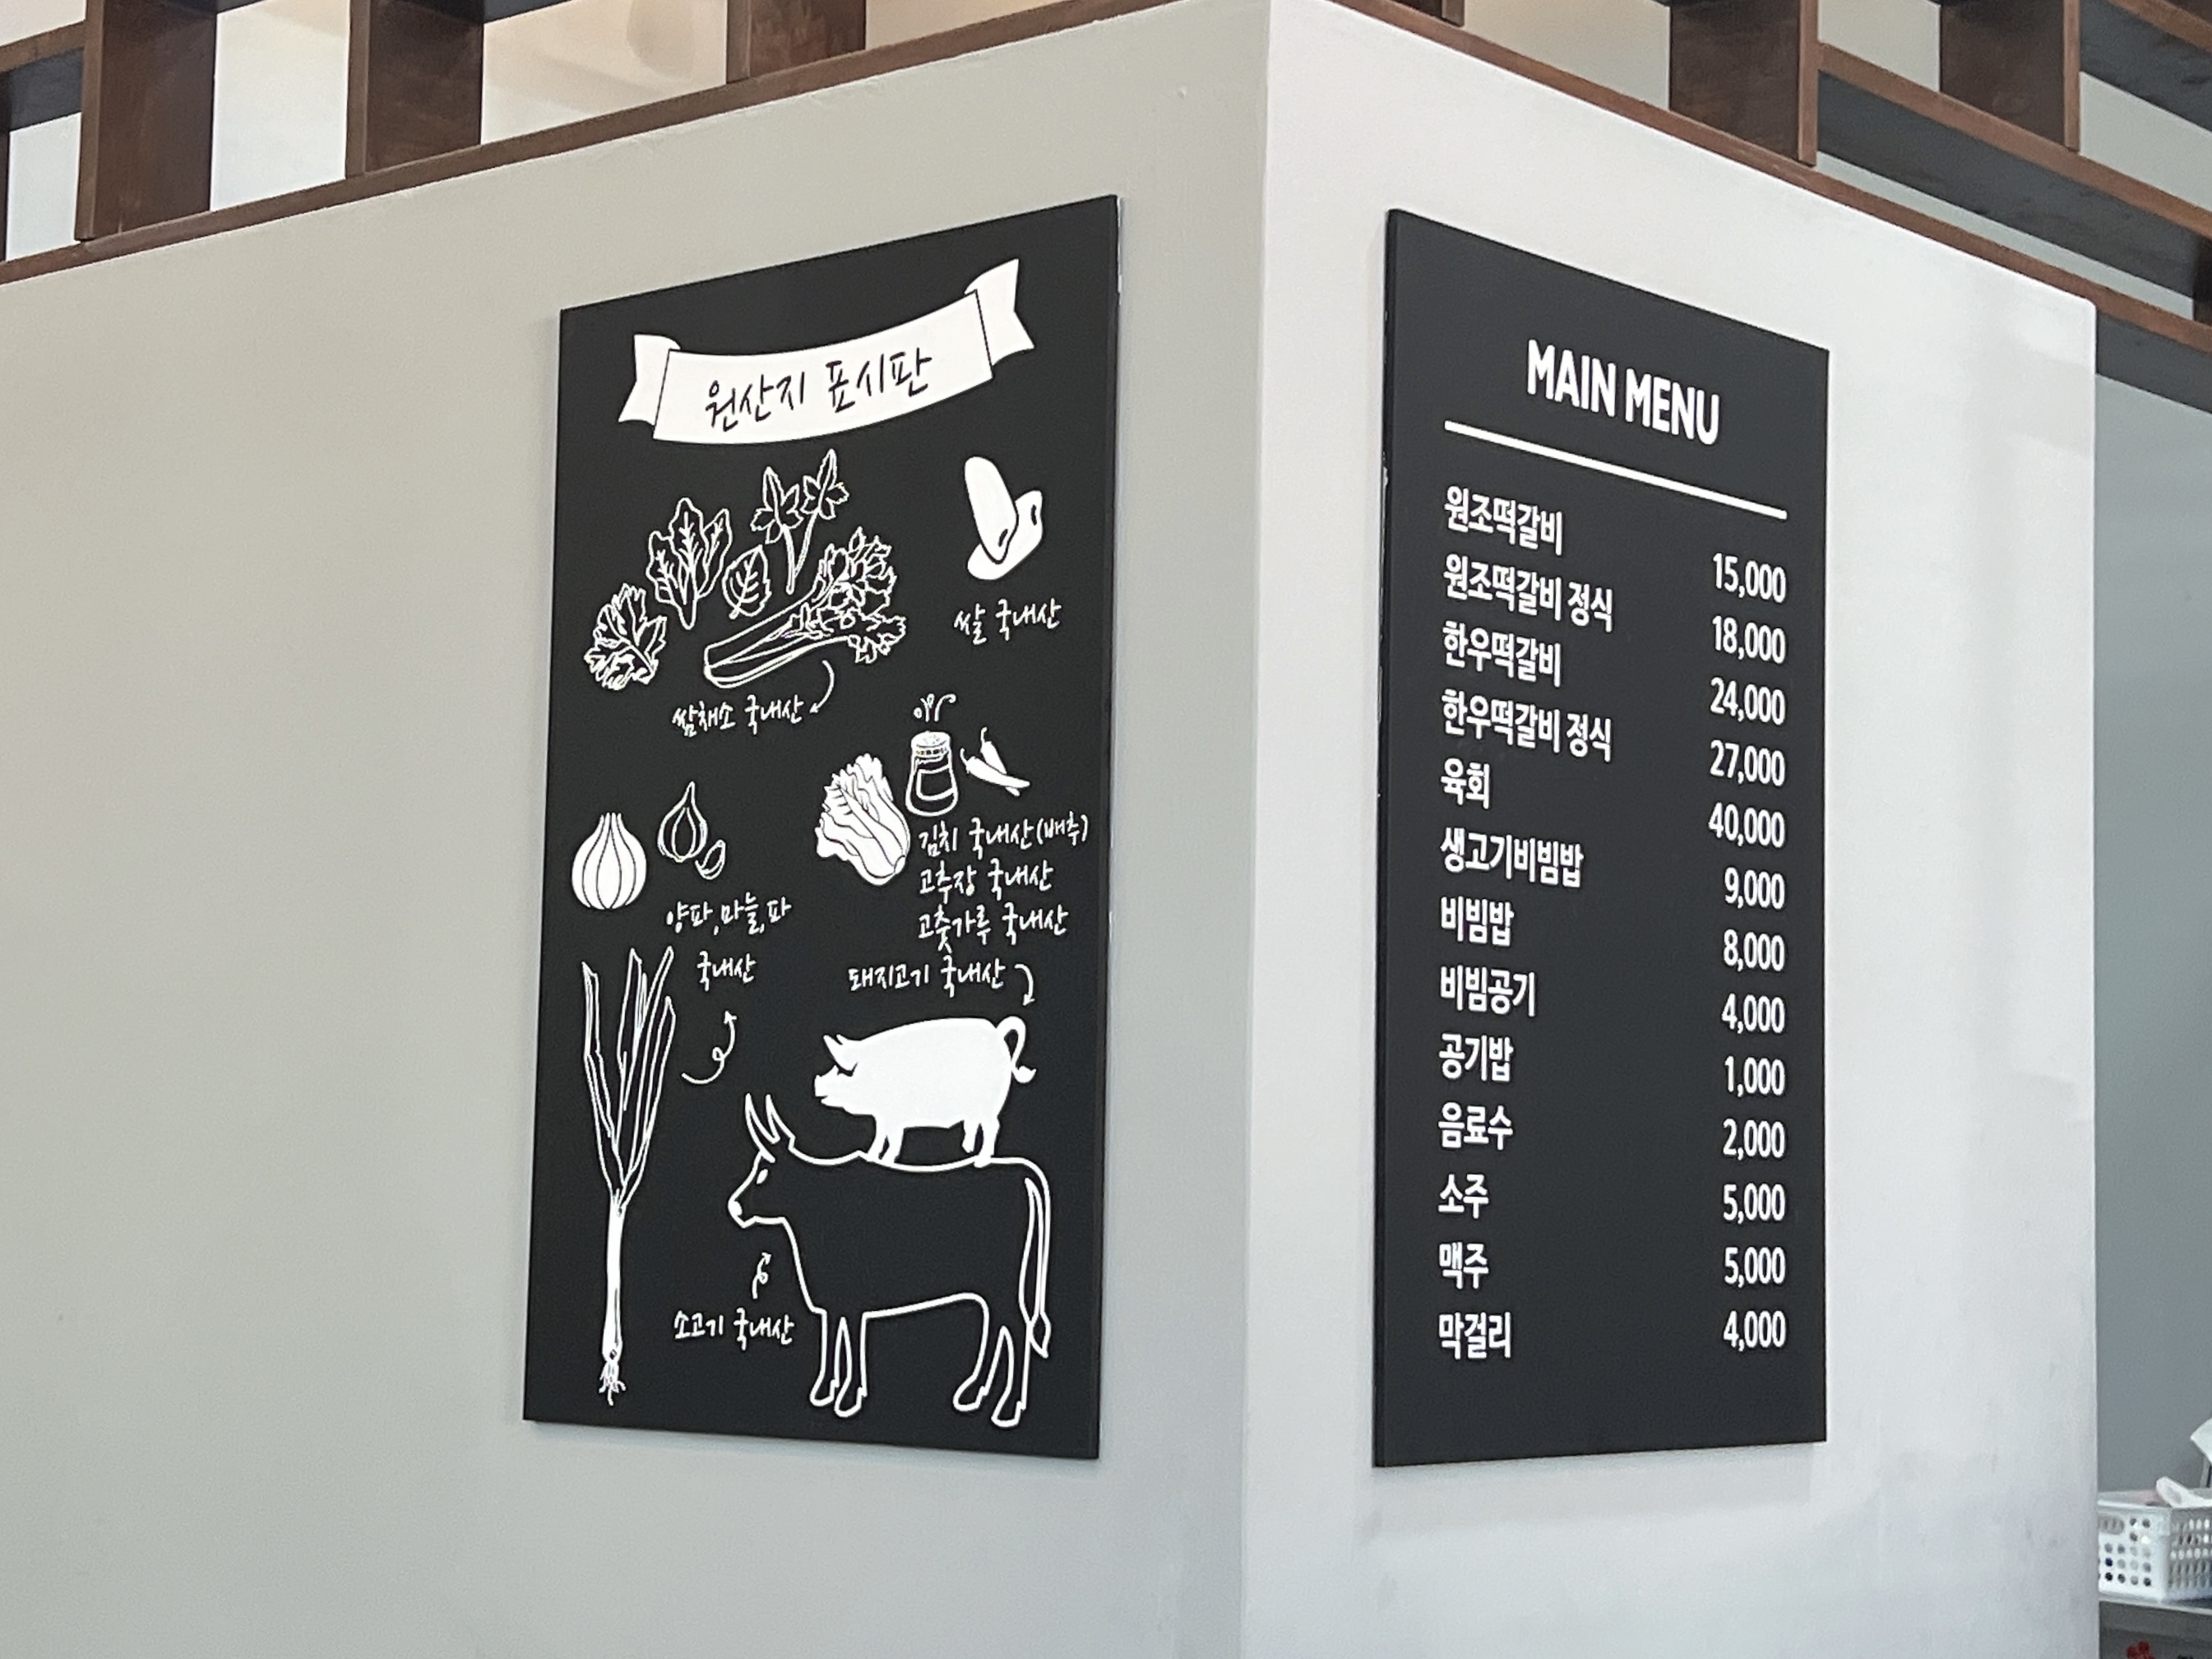 원산지 표시판
쌀 국내산
쌈채소 국내산
김치 국내산(배추)
고추장 국내산
고춧가루 국내산
양파,마늘,파
국내산
돼지고기 국내산
소고기 국내산
MAIN MENU
원조떡갈비 15,000
원조떡갈비 정식 18,000
한우떡갈비 24,000
한우떡갈비 정식 27,000
육회 40,000
생고기비빔밥 9,000
비빔밥 8,000
비빔공기 4,000
공기밥 1,000
음료수 2,000
소주 5,000
맥주 5,000
막걸리 4,000